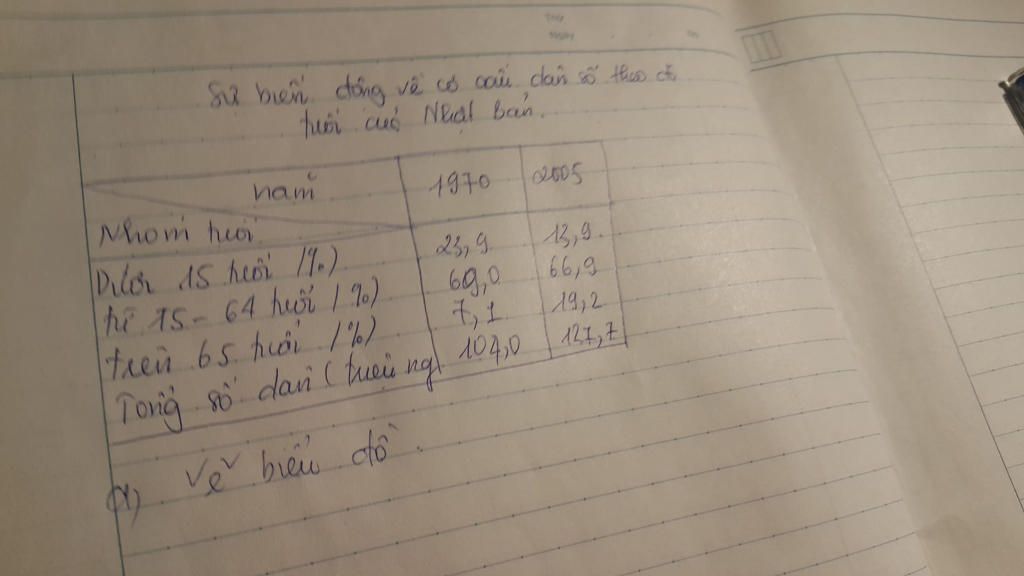 Thứ
Ngày
Sự biến động về cơ cấu dân số theo độ
tuổi của Nhật bản.
năm 1970 2005
Nhóm tuổi
Dưới 15 tuổi (%) 23,9 13,9
từ 15 - 64 tuổi (%) 69,0 66,9
trên 65 tuổi (%) 7,1 19,2
Tổng số dân (triệu ng) 104,0 127,7
a) Vẽ biểu đồ.